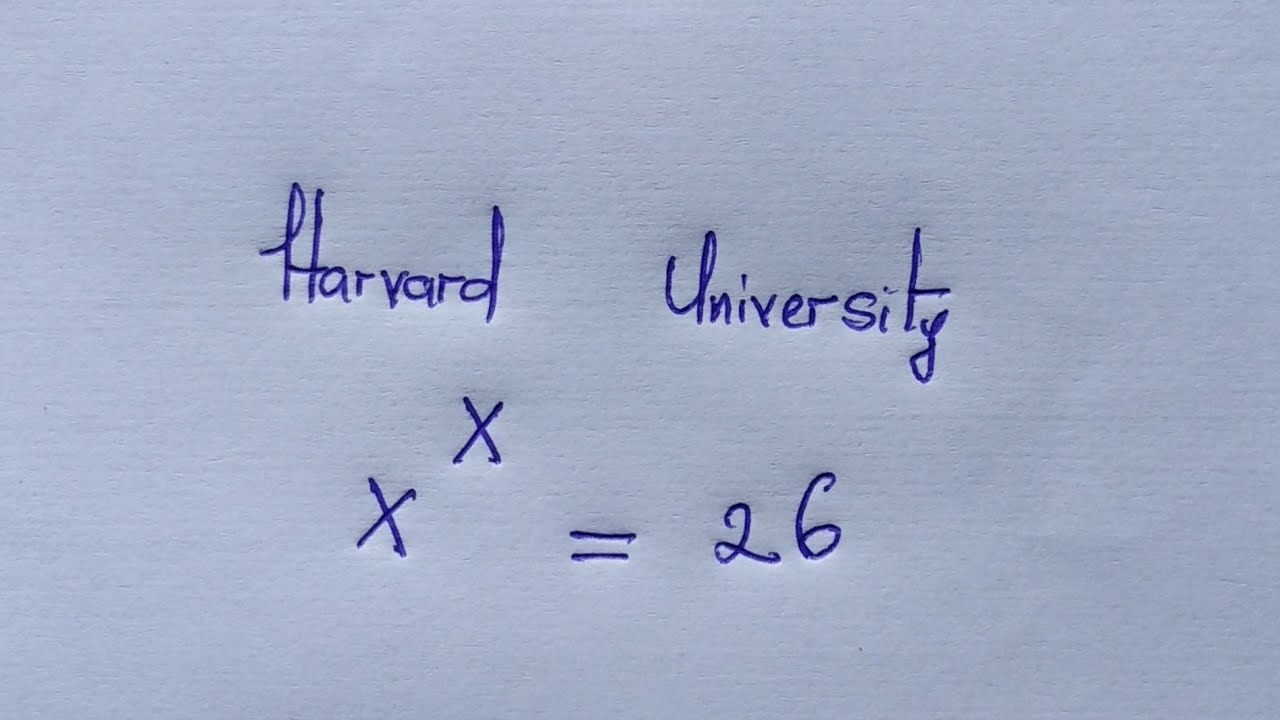 Harvard University
x^x = 26